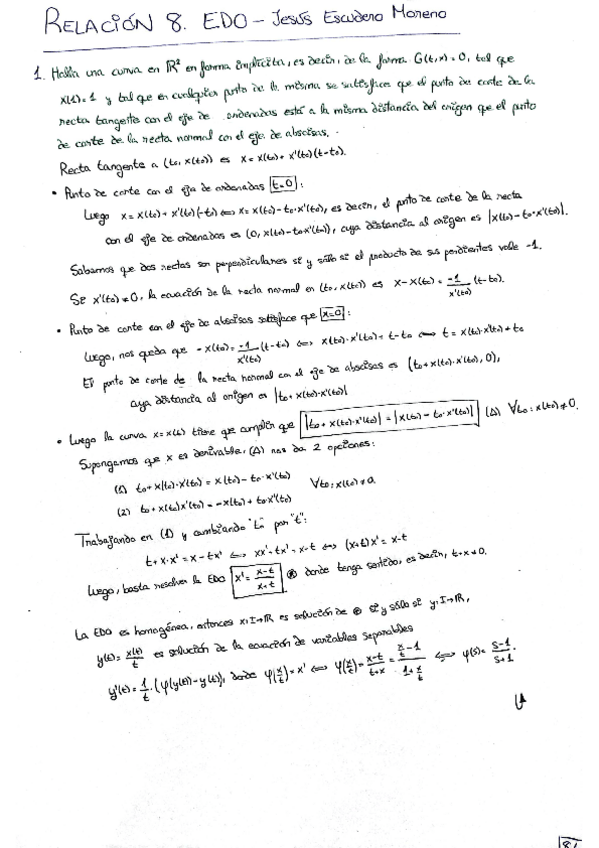 RELACIÓN 8. EDO - Jesús Escudero Moreno
1. Halla una curva en ℝ² en forma implícita, es decir, de la forma G(t,x)=0, tal que
x(1)=1 y tal que en cualquier punto de la misma se satisface que el punto de corte de la
recta tangente con el eje de ordenadas está a la misma distancia del origen que el punto
de corte de la recta normal con el eje de abscisas.
Recta tangente a (t₀, x(t₀)) es x = x(t₀) + x'(t₀)(t-t₀).
• Punto de corte con el eje de ordenadas t=0:
Luego x = x(t₀) + x'(t₀)(-t₀) ⟺ x = x(t₀) - t₀·x'(t₀), es decir, el punto de corte de la recta
con el eje de ordenadas es (0, x(t₀)-t₀x'(t₀)), cuya distancia al origen es |x(t₀)-t₀·x'(t₀)|.
Sabemos que dos rectas son perpendiculares si y sólo si el producto de sus pendientes vale -1.
Si x'(t₀)≠0, la ecuación de la recta normal en (t₀, x(t₀)) es x-x(t₀) = -1/x'(t₀) (t-t₀).
• Punto de corte con el eje de abscisas satisface que x=0:
Luego, nos queda que -x(t₀) = -1/x'(t₀) (t-t₀) ⟺ x(t₀)·x'(t₀) = t-t₀ ⟺ t = x(t₀)·x'(t₀)+t₀
El punto de corte de la recta normal con el eje de abscisas es (t₀+x(t₀)·x'(t₀), 0),
cuya distancia al origen es |t₀+x(t₀)·x'(t₀)|
• Luego la curva x=x(t) tiene que cumplir que |t₀+x(t₀)·x'(t₀)| = |x(t₀)-t₀·x'(t₀)| (Δ) ∀t₀: x(t₀)≠0.
Supongamos que x es derivable. (Δ) nos da 2 opciones:
(1) t₀+x(t₀)·x'(t₀) = x(t₀)-t₀·x'(t₀)
∀t₀: x(t₀)≠0.
(2) t₀+x(t₀)x'(t₀) = -x(t₀)+t₀·x'(t₀)
Trabajando en (1) y cambiando "t₀" por "t":
t+x·x' = x-tx' ⟺ xx'+tx' = x-t ⟺ (x+t)x' = x-t
Luego, basta resolver la EDO x' = x-t/x+t ⊛ donde tenga sentido, es decir, t+x≠0.
La EDO es homogénea, entonces x:I→ℝ es solución de ⊛ si y sólo si y:I→ℝ,
y(t) = x(t)/t es solución de la ecuación de variables separables
y'(t) = 1/t · (φ(y(t))-y(t)), donde φ(x/t) = x' ⟺ φ(x/t) = x-t/t+x = x/t-1/1+x/t ⟺ φ(s) = s-1/s+1.